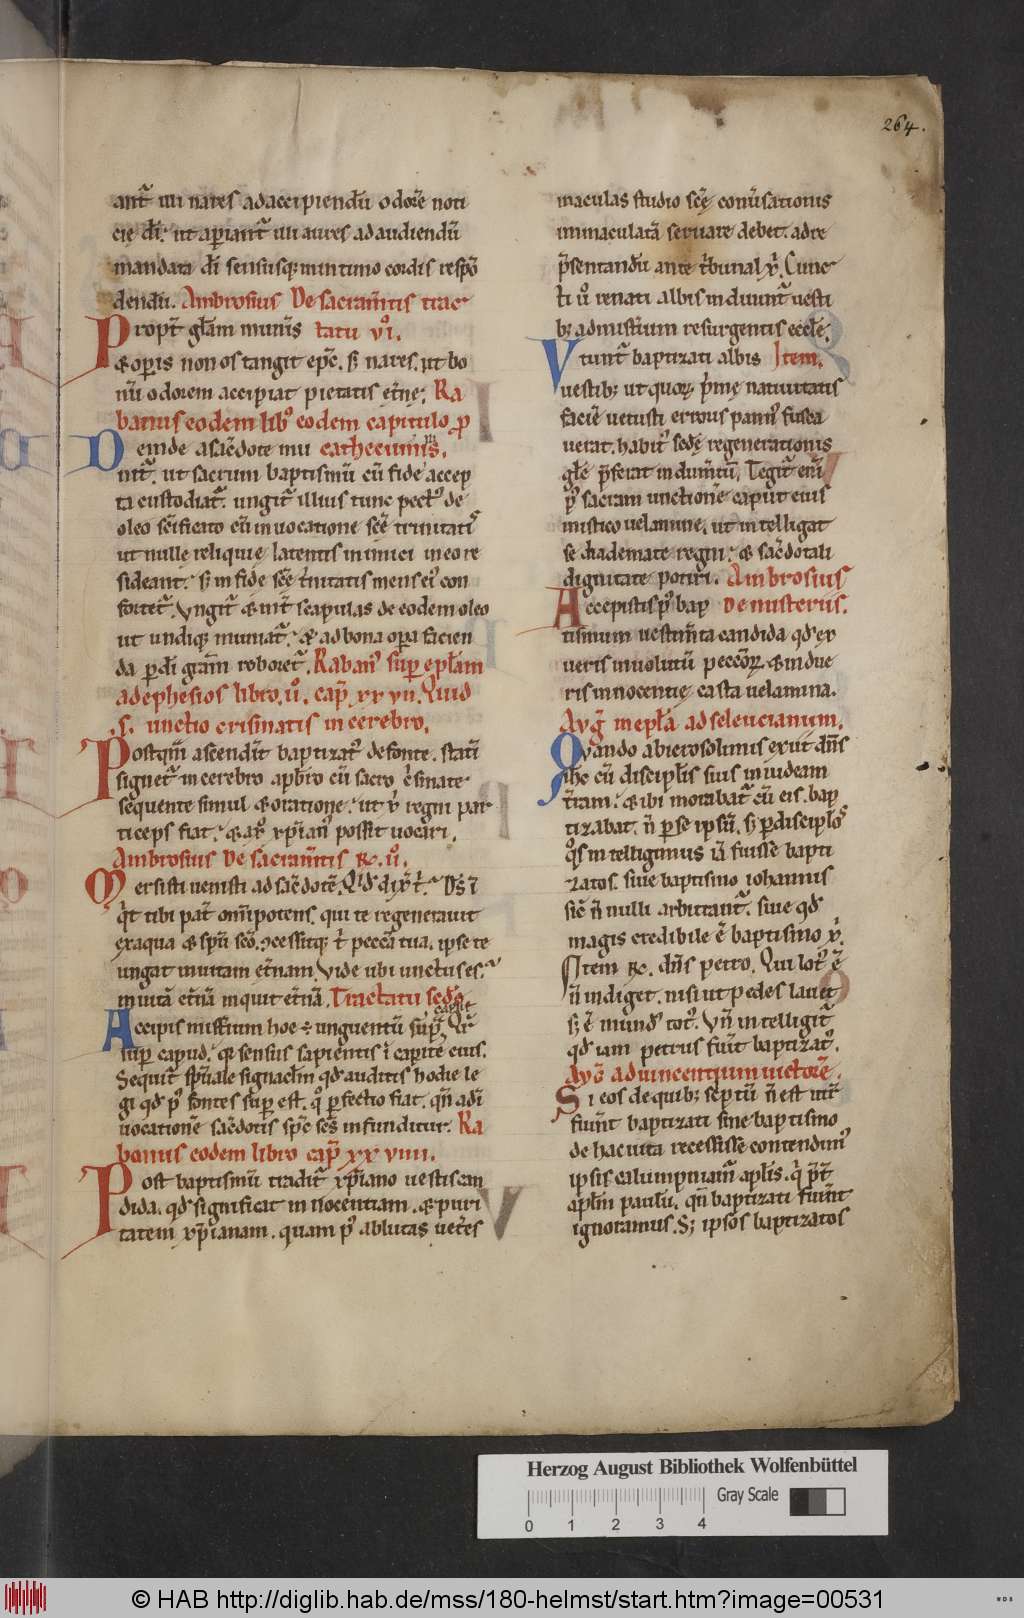 264.
ant᷑ tui nares ad accipiendū odorē noti
cię dī. ut aperiant᷑ tui aures ad audiendū
mandata dī sensusq; in intimo cordis respō
dendū. Ambrosius De sacram̄tis trac
Propt̄ gl̄am muneris tatu vi.
& operis non os tangit ep̄c. s; nares. ut bo
nū odorem accipiat pietatis et̄ne. Ra
banus eodem libº eodem capitulo p
Deinde a sac̄dote inu cathecumis.
nit᷑. ut sacrum baptismū cū fide accep
ta custodiat᷑. ungit᷑ illius tunc pect' de
oleo sc̄ificato cū inuocatione sc̄e trinitatis
ut nulle reliquię latentis inimici in eo re
sideant. s; in fide sc̄e t̓nitatis mens ei' con
fortet᷑. Vngit᷑ & int̄ scapulas de eodem oleo
ut undiq; muniat᷑. & ad bona opera facien
da per dī gr̄am roboret᷑. Raban' super ep̄lam
ad ephesios libro.ii. cap̄ xxvii. Quid
.s. unctio crismatis in cerebro.
Postqm̄ ascenderit baptizat' de fonte. statī
signet᷑ in cerebro a prb̄ro cū sacro c̓smate
sequente simul & oratione. ut xp̄i regni par
ticeps fiat. & a xp̄o xp̄ian' possit uocari.
Ambrosius De sacram̄tis &c. ii.
Mersisti uenisti ad sac̄dotē. Qid dix̄ t̓. Ds̄ ī
q̓t tibi pat̄ om̄ipotens. qui te regenerauit
ex aqua & sp̄u sc̄o. concessitq; t̓ peccā tua. ipse te
ungat in uitam et̄nam. Vide ubi unctus es.
in uitā et̄nā inquit et̄nā. Tractatu sc̄do
caput
Accipis missum hoc ÷ unguentū supra. Qr̄
super capud. qr̄ sensus sapientis ī capite eius.
Sequit᷑ sp̄uale signaclm̄ qd̄ auditis hodie le
gi qd̄ p' fontes super est. q̊ perfectio fiat. qn̄ ad ī
uocationē sac̄dotis sp̄c sc̄s infunditur. Ra
banus eodem libro cap̄ xxviiii.
Post baptismū tradit᷑ xp̄iano uestis can
dida. qd̄ significat innocentiam. & puri
tatem xp̄ianam. quam p' ablutas uet̄es
maculas studio sc̄ę conūsationis
immaculatā seruare debet. ad re
p̄sentandū ante t̓bunal xp̄i. Cunc
ti ů renati albis induunt᷑ uesti
b; ad mist̄ium resurgentis eccl̄e.
Vtunt᷑ baptizati albis Item.
uestib; ut quor; p̓mę natiuitatis
faciē uetusti erroris pann' fusca
uerat. habit' sc̄dę regenerationis
gl̄e p̄ferat indum̄tū. Tegit᷑ enī
p' sacram unctionē caput eius
mistico uelamine. ut intelligat
se diademate regni. & sac̄dotali
dignitate potiri. Ambrosius
Accepistis p' bap De misteriis.
tismum uestim̄ta candida qd̄ ex
ueris inuolucrū peccōr;. & indue
ris innocentię casta uelamina.
Avg̃ in ep̄la ad seleucianum.
Qvando ab ierosolimis exiit dn̄s
ih̄c cū discipl̄is suis in iudeam
t̄ram. & ibi morabat᷑ cū eis. bap
tizabat. n̄ per se ipsū. s; per discipl̄os
q̊s intelligimus iā fuisse bapti
zatos. siue baptismo iohannis
sic̄ n̄ nulli arbitrant᷑. siue qd̄
magis credibile ē baptismo xp̄i.
Item &c. dn̄s petro. Qui lot' ē
n̄ indiget. nisi ut pedes lauet
s; ē mund' tot'. Vn̄ intelligit᷑
qd̄ iam petrus fuerit baptizat'.
Avḡ ad uincentium uictorē.
Si eos de quib; scriptū n̄ est utr̄
fiunt baptizati sine baptismo
de hac uita recessisse contendim'
ipsis calumpniam̄ apl̄is. q̓ p̄t̄
apl̄m paulū. qn̄ baptizati fuer̄t
ignoramus. S; ipsos baptizatos
Herzog August Bibliothek Wolfenbüttel
Gray Scale
0 1 2 3 4
© HAB http://diglib.hab.de/mss/180-helmst/start.htm?image=00531